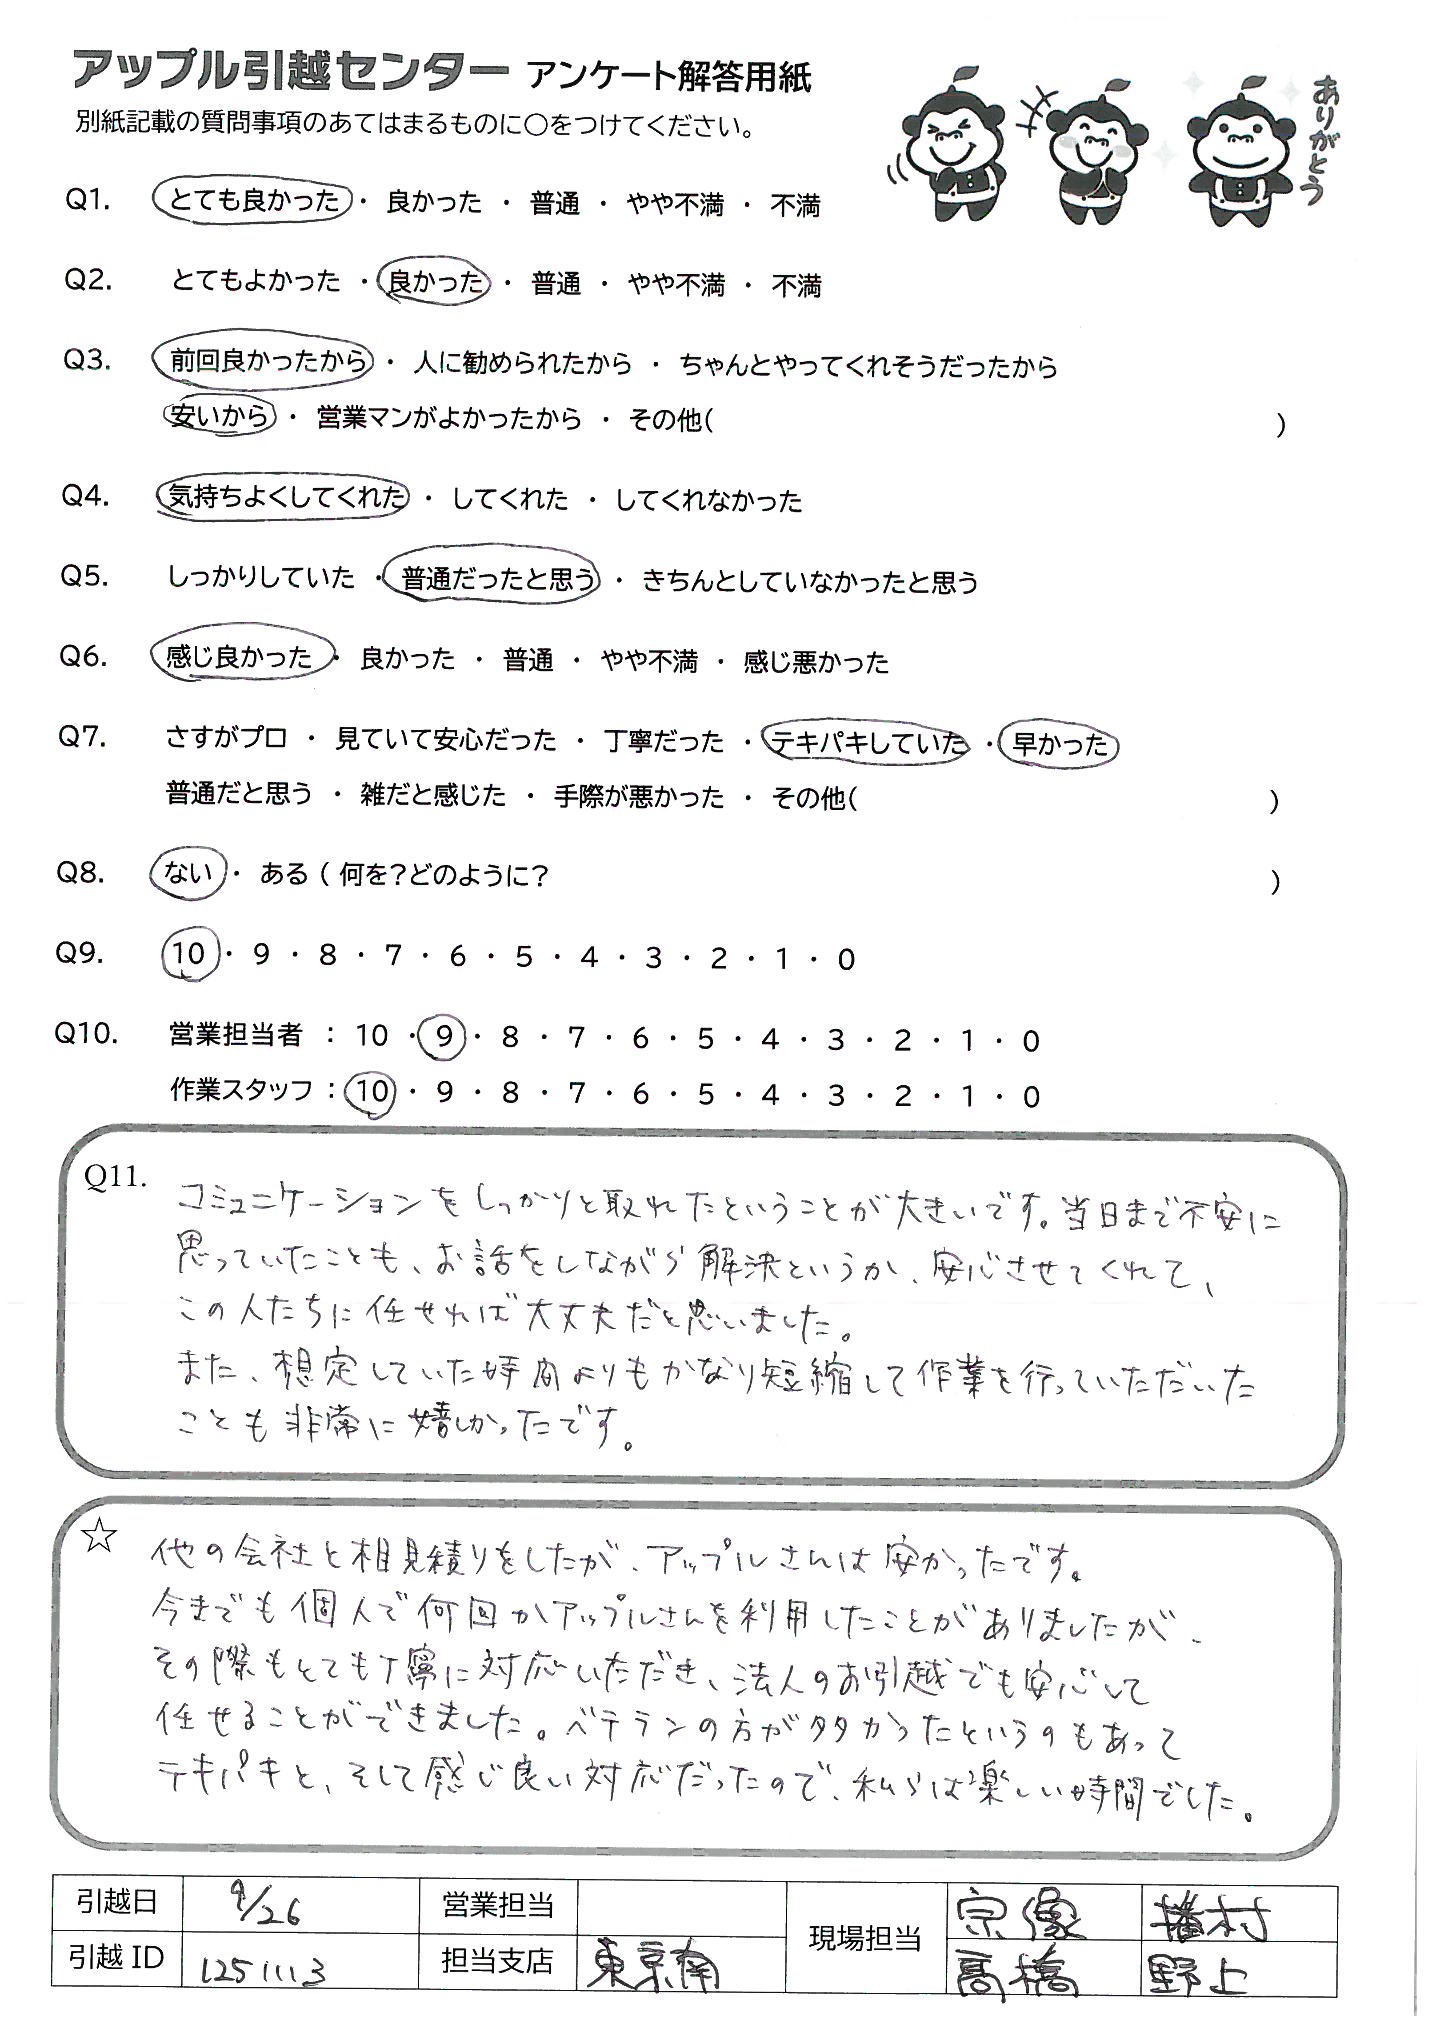 アップル引越センター アンケート解答用紙
別紙記載の質問事項のあてはまるものに○をつけてください。
ありがとう
Q1. とても良かった ・ 良かった ・ 普通 ・ やや不満 ・ 不満
Q2. とてもよかった ・ 良かった ・ 普通 ・ やや不満 ・ 不満
Q3. 前回良かったから ・ 人に勧められたから ・ ちゃんとやってくれそうだったから
安いから ・ 営業マンがよかったから ・ その他( )
Q4. 気持ちよくしてくれた ・ してくれた ・ してくれなかった
Q5. しっかりしていた ・ 普通だったと思う ・ きちんとしていなかったと思う
Q6. 感じ良かった ・ 良かった ・ 普通 ・ やや不満 ・ 感じ悪かった
Q7. さすがプロ ・ 見ていて安心だった ・ 丁寧だった ・ テキパキしていた ・ 早かった
普通だと思う ・ 雑だと感じた ・ 手際が悪かった ・ その他( )
Q8. ない ・ ある ( 何を?どのように? )
Q9. 10 ・ 9 ・ 8 ・ 7 ・ 6 ・ 5 ・ 4 ・ 3 ・ 2 ・ 1 ・ 0
Q10. 営業担当者 : 10 ・ 9 ・ 8 ・ 7 ・ 6 ・ 5 ・ 4 ・ 3 ・ 2 ・ 1 ・ 0
作業スタッフ : 10 ・ 9 ・ 8 ・ 7 ・ 6 ・ 5 ・ 4 ・ 3 ・ 2 ・ 1 ・ 0
Q11. コミュニケーションをしっかりと取れたということが大きいです。当日まで不安に
思っていたことも、お話をしながら解決というか、安心させてくれて、
この人たちに任せれば大丈夫だと思いました。
また、想定していた時間よりもかなり短縮して作業を行っていただいた
ことも非常に嬉しかったです。
☆ 他の会社と相見積りをしたが、アップルさんは安かったです。
今までも個人で何回かアップルさんを利用したことがありましたが、
その際もとても丁寧に対応いただき、法人のお引越でも安心して
任せることができました。ベテランの方が多かったというのもあって
テキパキと、そして感じ良い対応だったので、私らは楽しい時間でした。
引越日 9/26 営業担当 現場担当 宗像 播村
引越 ID 1251113 担当支店 東京南 高橋 野上